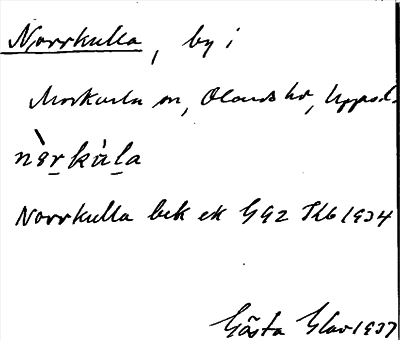 Norrkulla, by i
Morkarla sn, Olands hd, Uppsal
nòrkùla
Norrkulla bek ek G92 Skb 1934
Gösta Glav 1937